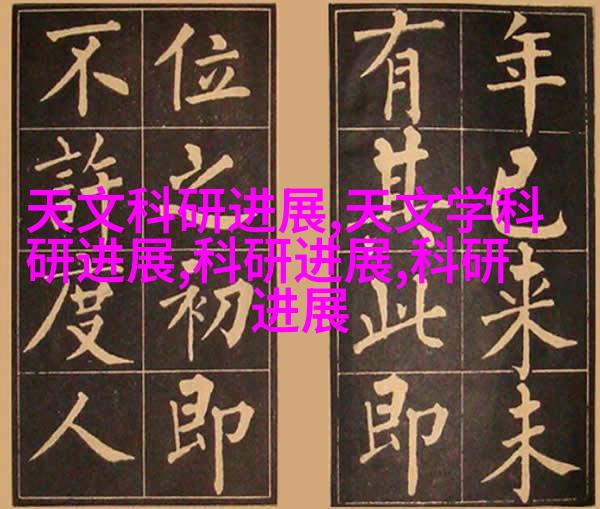 天文科研进展,天文学科
研进展,科研进展,科研
进展
年已来未
有其此即
位之初即
不許度人